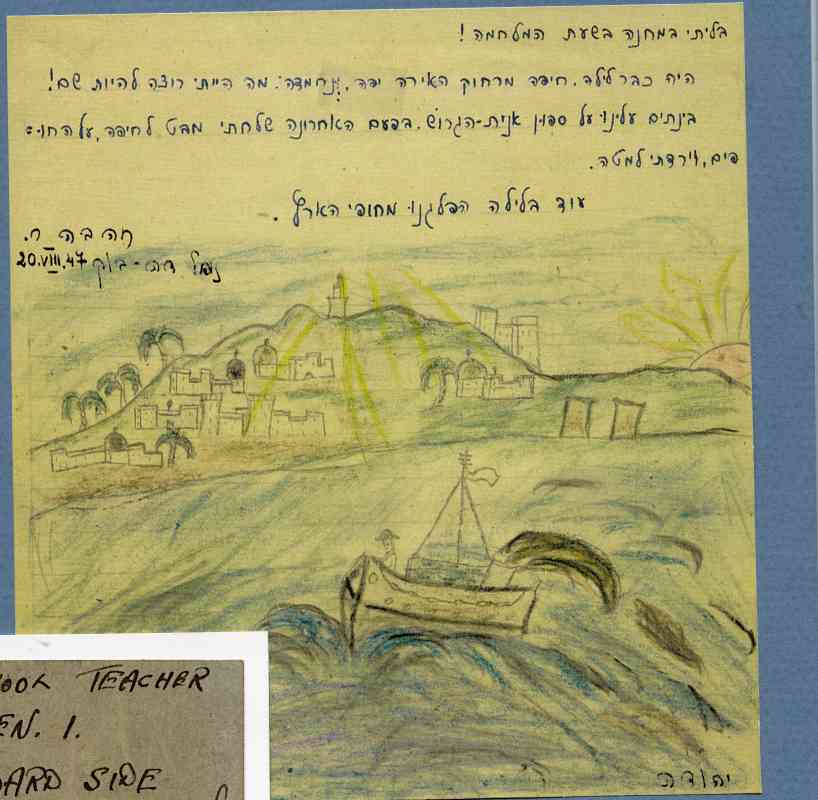 בליתי במחנה בשעת המלחמה!
היה כבר לילה. חיפה מרחוק האירה יפה, נחמדה: מה הייתי רוצה להיות שם!
בינתים עלינו על ספון אנית-הגרוש. בפעם האחרונה שלחתי מבט לחיפה, על החו-
פים, וירדתי למטה.
עוד בלילה הפלגנו מחופי הארץ.
20.VIII.47
יהודית
TEACHER
EN. 1.
ARD SIDE